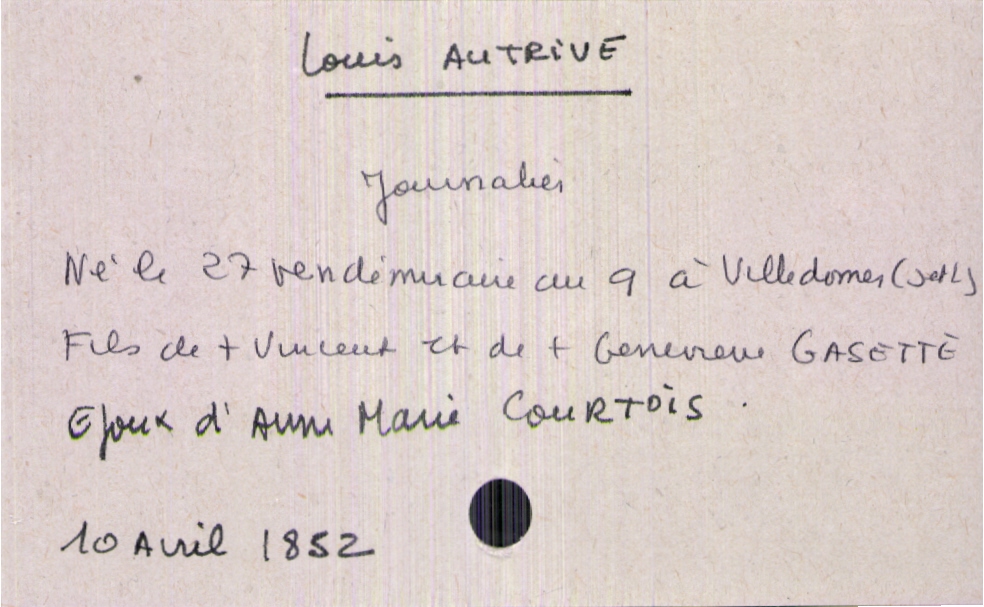 Louis AUTRIVE
Journalier
Né le 27 vendémiaire an 9 à Villedomer (I et L)
Fils de + Vincent et de + Genevieve GASETTE
Epoux d' Anne Marie COURTOIS.
10 Avril 1852